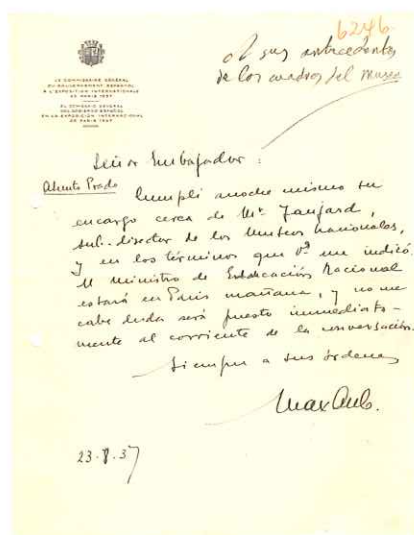 6246
A sus antecedentes
de los cuadros del Museo
LE COMMISSAIRE GÉNÉRAL
DU GOUVERNEMENT ESPAGNOL
A L'EXPOSITION INTERNATIONALE
DE PARIS 1937
EL COMISARIO GENERAL
DEL GOBIERNO ESPAÑOL
EN LA EXPOSICIÓN INTERNACIONAL
DE PARIS 1937
Señor Embajador:
Asunto Prado
Cumplí anoche mismo su
encargo cerca de Mr. Jaujard,
sub-director de los Museos nacionales,
y en los términos que Vd. me indicó.
El Ministro de Educación Nacional
estará en Paris mañana, y no me
cabe duda será puesto inmediata-
mente al corriente de la conversación.
Siempre a sus órdenes
Max Aub.
23.8.37